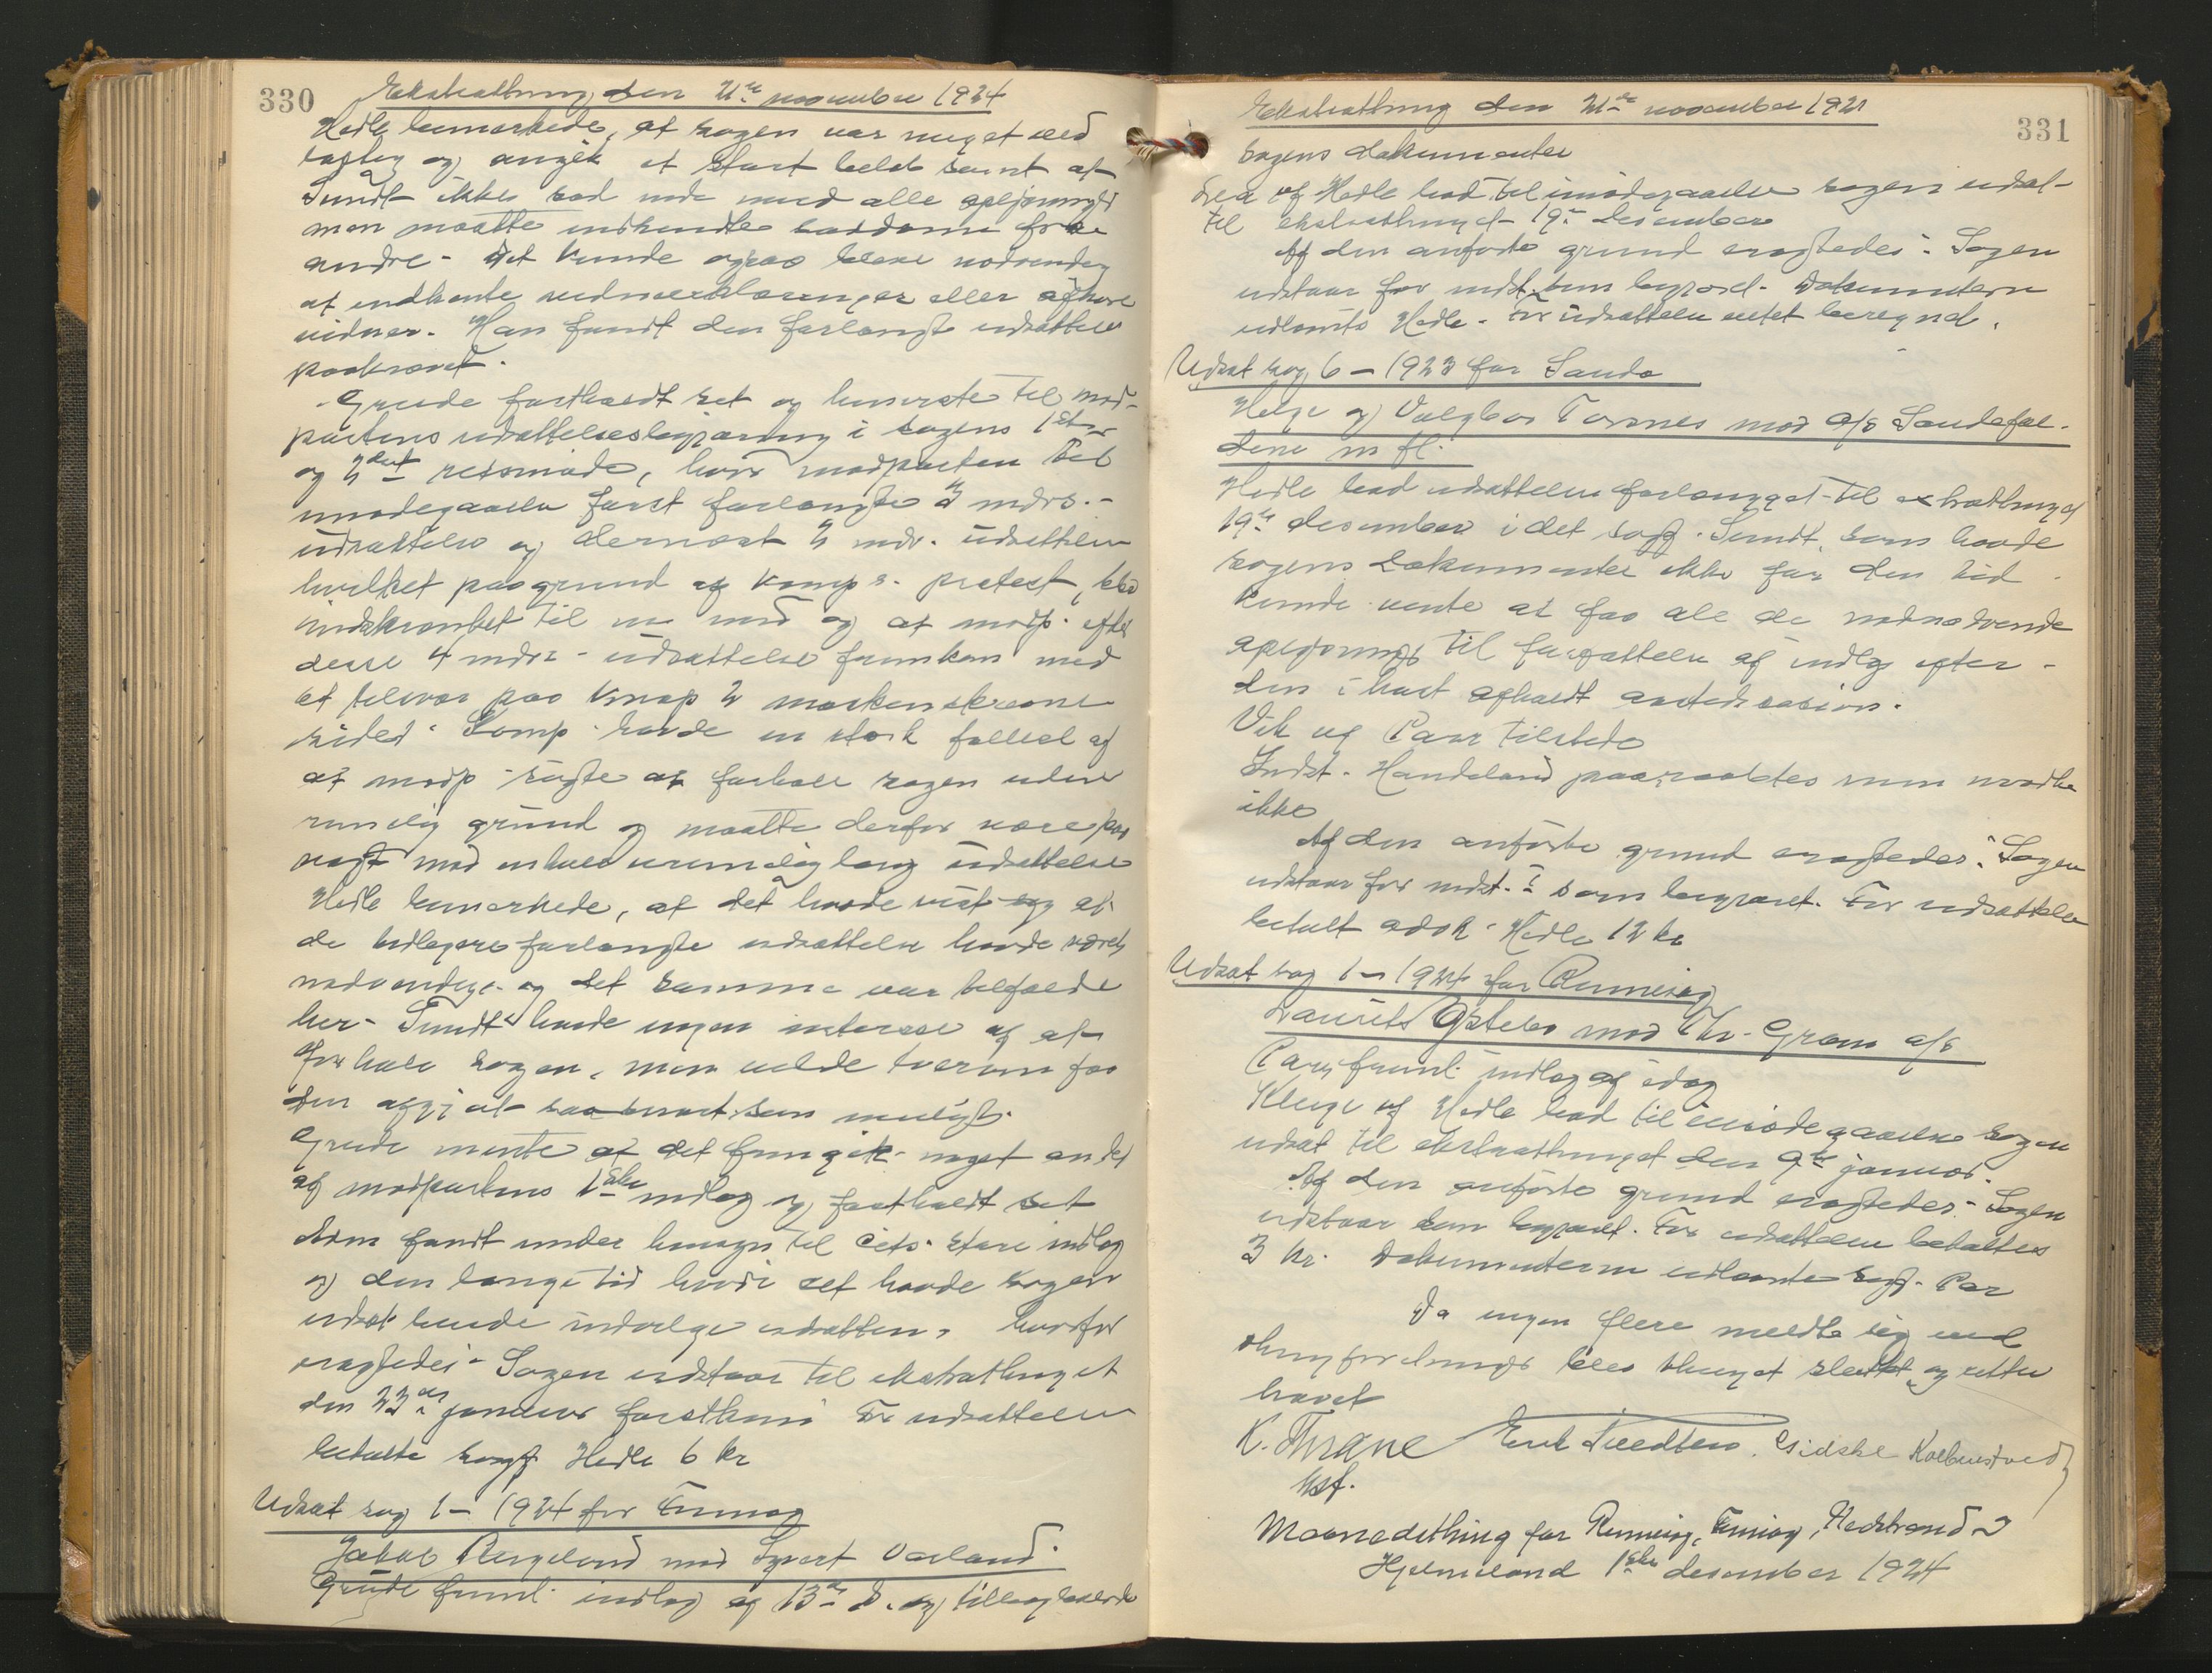 330
Ekstrathing den 21de november 1924
Hedle bemerkede, at sagen var meget ved
og angik et stort beløb samt at
Sundt ikke sad inde med alle oplysninger
men maatte indhente saadanne fra
andre - Det kunde ogsaa bleve nødvendig
at indhente vidneerklæringer eller afhøre
vidner. Han fandt den forlangte udsættelse
paakrævet.
Grude fastholdt sit og henviste til mod-
partens udsættelsesbegjæring i sagens 1ste
og 2det retsmøde, hvor modparten til
imødegaaelse først forlangte 3 mdrs.
udsættelse og dernæst 2 mdr. udsættelse
hvilket paa grund af komp s. protest, blev
indskrænket til en mnd og at modp. efter
disse 4 mdrs - udsættelse fremkom med
et tilsvar paa knap 2 maskinskrevne
sider. Komp. havde en sterk følelse af
at modp. søgte at forhale sagen uden
rimelig grund og maatte derfor være paa
vagt mod enhver urimelig lang udsættelse
Hedle bemerkede, at det havde vist sig at
de tidligere forlangte udsættelse havde været
nødvendige og det samme var tilfælde
her - Sundt havde ingen interesse af at
forhale sagen, men vilde tværtom faa
den afgjort saa snart som muligt.
Grude mente at det fremgik noget andet
af modpartens 1ste indlæg og fastholdt sit
Adm fandt under hensyn til cits. store indlæg
og den lange tid hvori det havde sagen
udsat burde indvilge udsættelsen, hvorfor
eragtedes - Sagen udstaar til ekstrathinget
den 22de januar førstkom. For udsættelsen
betalte sagf. Hedle 6 kr
Udsat sag 1 - 1924 for Finnøy
Jakob Rengeland mod Sjvert Varland.
Grude freml. indlæg af 13de ds. og tilbagelevde
Ekstrathing den 21de november 1921
331
sagens dokumenter
Lea vf Hedle bad til imødegaaelse sagen udsat
til ekstrathinget 19de desember
Af den anførte grund eragtedes: Sagen
udstaar for indst. som begjæret. Dokumenterne
udlaantes Hedle. For udsættelse intet beregnet.
Udsat sag 6 - 1923 for Sauda
Helge og Valgbor Tornes mod a/s Saudefal-
dene m fl.
Hedle bad udsættelse forlænget til extrathinget
19de desember idet sagf. Sundt, som havde
sagens dokumenter ikke før den tid
kunde vente at faa alle de nødvendige
oplysninger til forfattelse af indlæg efter
den i høst afholdt aastedssesion.
Vik vf Paar tilstede
Indst. Handeland paaraabtes men mødte
ikke
Af den anførte grund eragtedes: Sagen
udstaar for indst. i som begjæret. For udsættelse
betalt adok. Hedle 12 kr
Udsat sag 1 - 1924 for Rennesøy
Laurits Østebø mod Chr. Gram a/s
Paar freml. indlæg af idag
Kluge vf Hedle bad til imødegaaelse sagen
udsat til ekstrathinget den 9de januar.
Af den anførte grund eragtedes - Sagen
udstaar som begjæret. For udsættelsen betaltes
3 kr. Dokumenterne udlaantes sagf. Paar
Da ingen flere meldte sig ved
thingforelsninger blev thinget sluttet og retten
hævet
K. Thrane
kst.
Moanedsthing for Rennesøy, Finnøy, Nedstrand &
Hjelmeland 1ste desember 1924